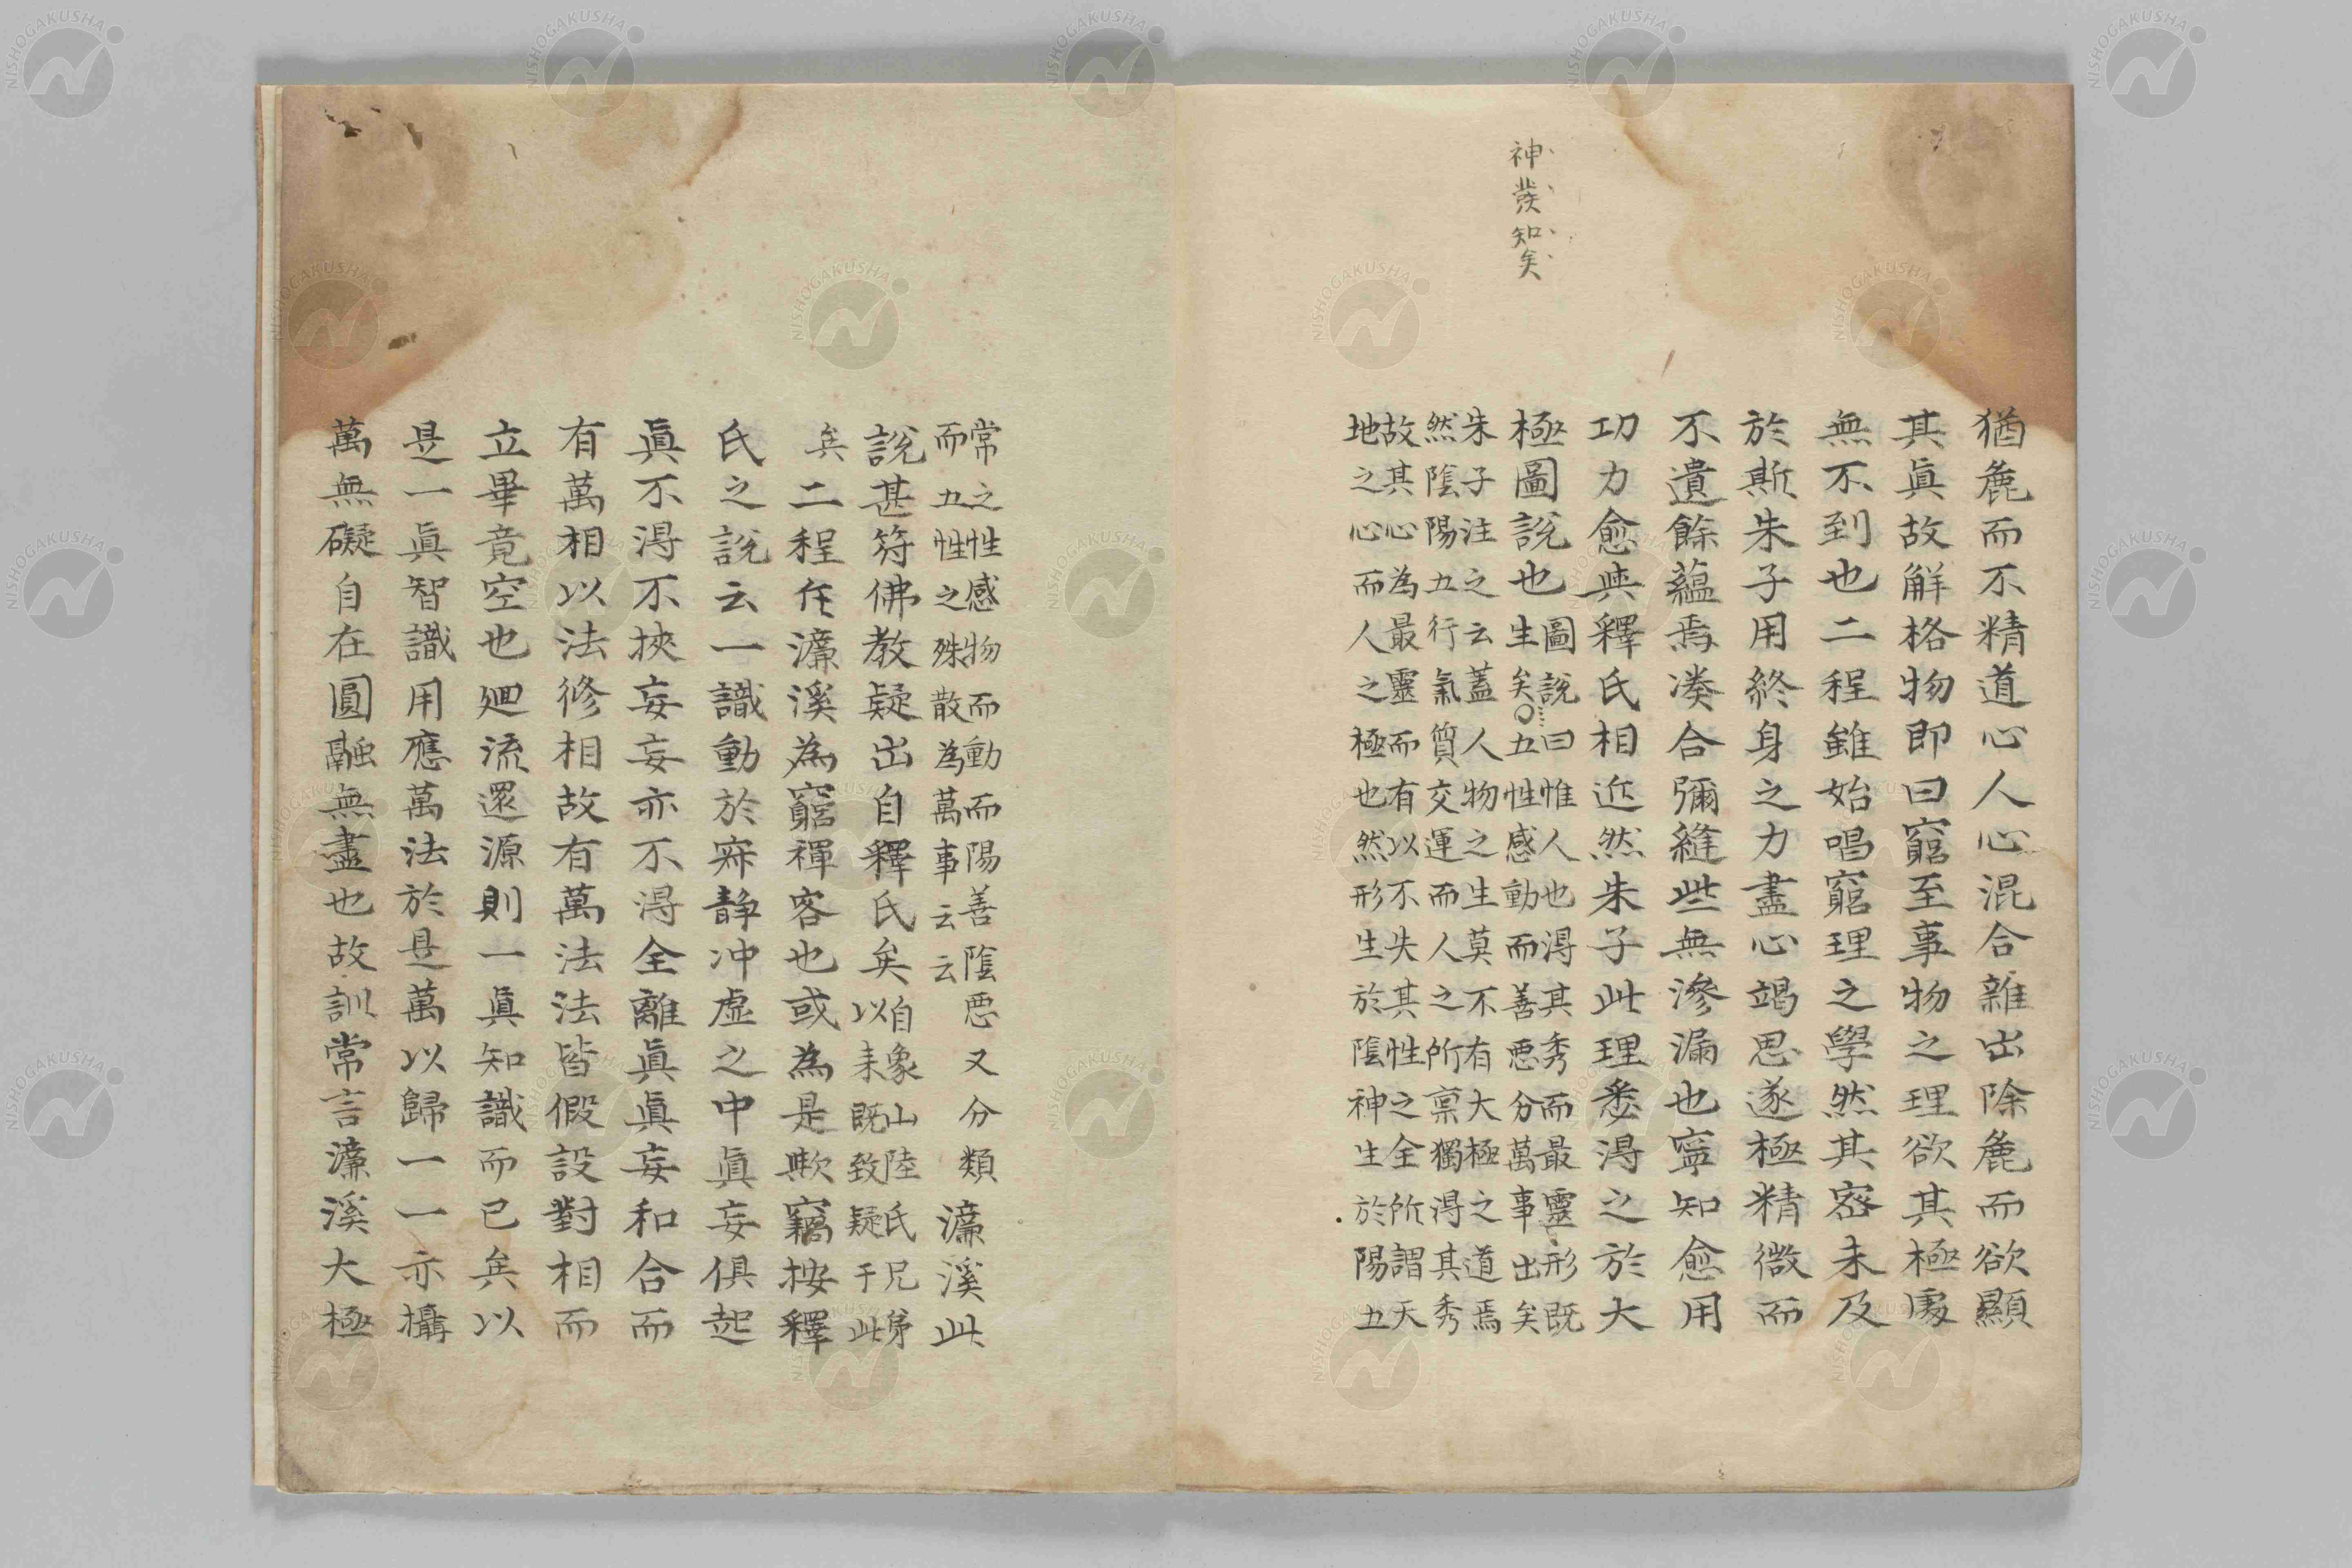 神發知矣
猶麁而不精道心人心混合雜出除麁而欲顯
其眞故解格物即曰窮至事物之理欲其極處
無不到也二程雖始唱窮理之學然其密未及
於斯朱子用終身之力盡心竭思遂極精微而
不遺餘蘊焉湊合彌縫些無滲漏也寧知愈用
功力愈與釋氏相近然朱子此理悉得之於大
極圖說也
圖說曰惟人也得其秀而最靈形既
生矣○五性感動而善悪分萬事出矣
朱子注之云蓋人物之生莫不有大極之道焉
然陰陽五行氣質交運而人之所稟獨得其秀
故其心為最靈而有以不失其性之全所謂天
地之心而人之極也然形生於陰神生於陽五
常之性感物而動而陽善陰悪又分類
而五性之殊散為萬事云云
濂溪此
說甚符佛教疑出自釋氏矣
自象山陸氏兄弟
以来既致疑于此
矣
二程在濂溪為窮禪客也或為是歟竊按釋
氏之說云一識動於寂静冲虛之中眞妄俱起
眞不得不挾妄妄亦不得全離眞眞妄和合而
有萬相以法修相故有萬法法皆假設對相而
立畢竟空也廻流還源則一眞知識而已矣以
是一眞智識用應萬法於是萬以歸一一亦攝
萬無礙自在圓融無盡也故訓常言濂溪大極
NISHOGAKUSHA